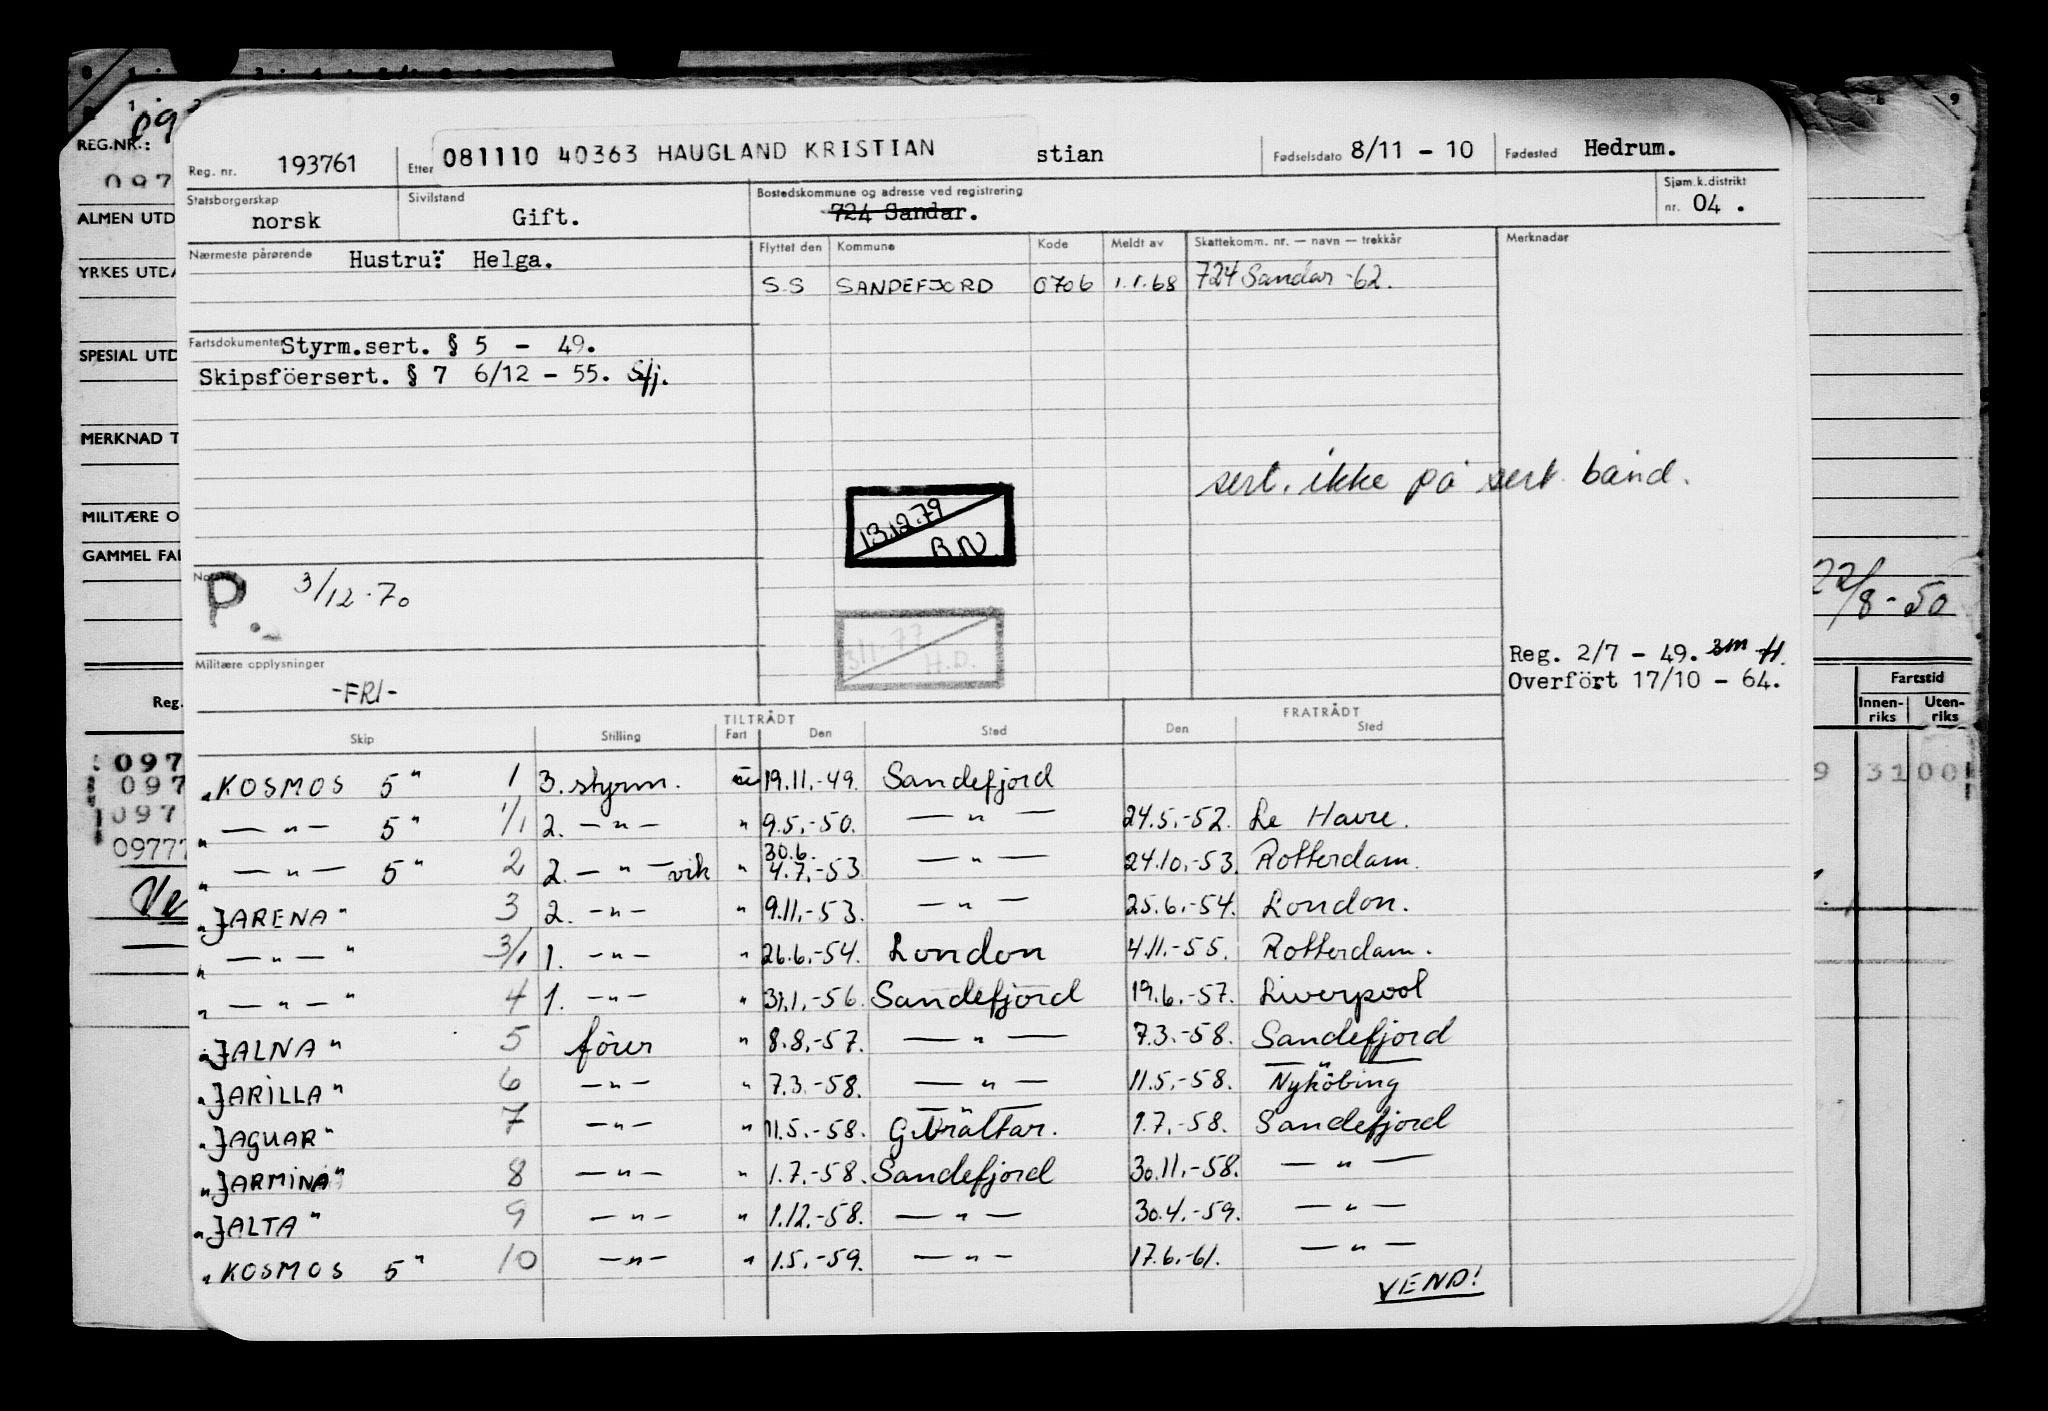 Reg. nr. 193761 Etter 081110 40363 HAUGLAND KRISTIAN stian Fødselsdato 8/11 - 10 Fødested Hedrum.
Statsborgerskap norsk Sivilstand Gift. Bostedskommune og adresse ved registrering 724 Sandar. Sjøm.k.distrikt nr. 04 .
Nærmeste pårørende Hustru: Helga. Flyttet den Kommune Kode Meldt av Skattekomm. nr. — navn — trekkår Merknader
S.S SANDEFJORD 0706 1.1.68 724 Sandar -62.
Fartsdokumenter Styrm.sert. § 5 - 49.
Skipsföersert. § 7 6/12 - 55. Sfj.
sert. ikke på sert. bånd.
13.12.79
B.N.
P. 3/12-70
3/1.77
H.D.
Militære opplysninger
-FRI-
Reg. 2/7 - 49.
Overfört 17/10 - 64.
TILTRÅDT FRATRÅDT
Skip Stilling Fart Den Sted Den Sted
"KOSMOS 5" 1 3. styrm. u 19.11.-49. Sandefjord
" — " — 5" 1/1 2. — " — " 9.5.-50. — " — 24.5.-52. Le Havre.
" — " — 5" 2 2. — " — vik " 30.6. 4.7.-53 — " — 24.10.-53. Rotterdam.
"JARENA" 3 2. — " — " 9.11.-53. — " — 25.6.-54. London.
" — " — " 3/1 1. — " — " 26.6.-54. London 4.11.-55. Rotterdam.
" — " — " 4 1. — " — " 31.1.-56. Sandefjord 19.6.-57. Liverpool
"JALNA" 5 förer " 8.8.-57. — " — 7.3.-58. Sandefjord
"JARILLA" 6 — " — " 7.3.-58. — " — 11.5.-58. — " — Nyköbing
"JAGUAR" 7 — " — " 11.5.-58. — " — Gibraltar. 1.7.-58. Sandefjord
"JARMINA" 8 — " — " 1.7.-58. Sandefjord 30.11.-58. — " —
"JALTA" 9 — " — " 1.12.-58. — " — 30.4.-59. — " —
"KOSMOS 5" 10 — " — " 1.5.-59. — " — 17.6.-61. — " —
VEND!
REG.NR.:
097
ALMEN UTD
YRKES UTDA
SPESIAL UTD
MERKNAD T
MILITÆRE O
GAMMEL FA
Reg.
097
097
097
09777
22/8-50
Fartstid
Innen-riks Uten-riks
9 31 00